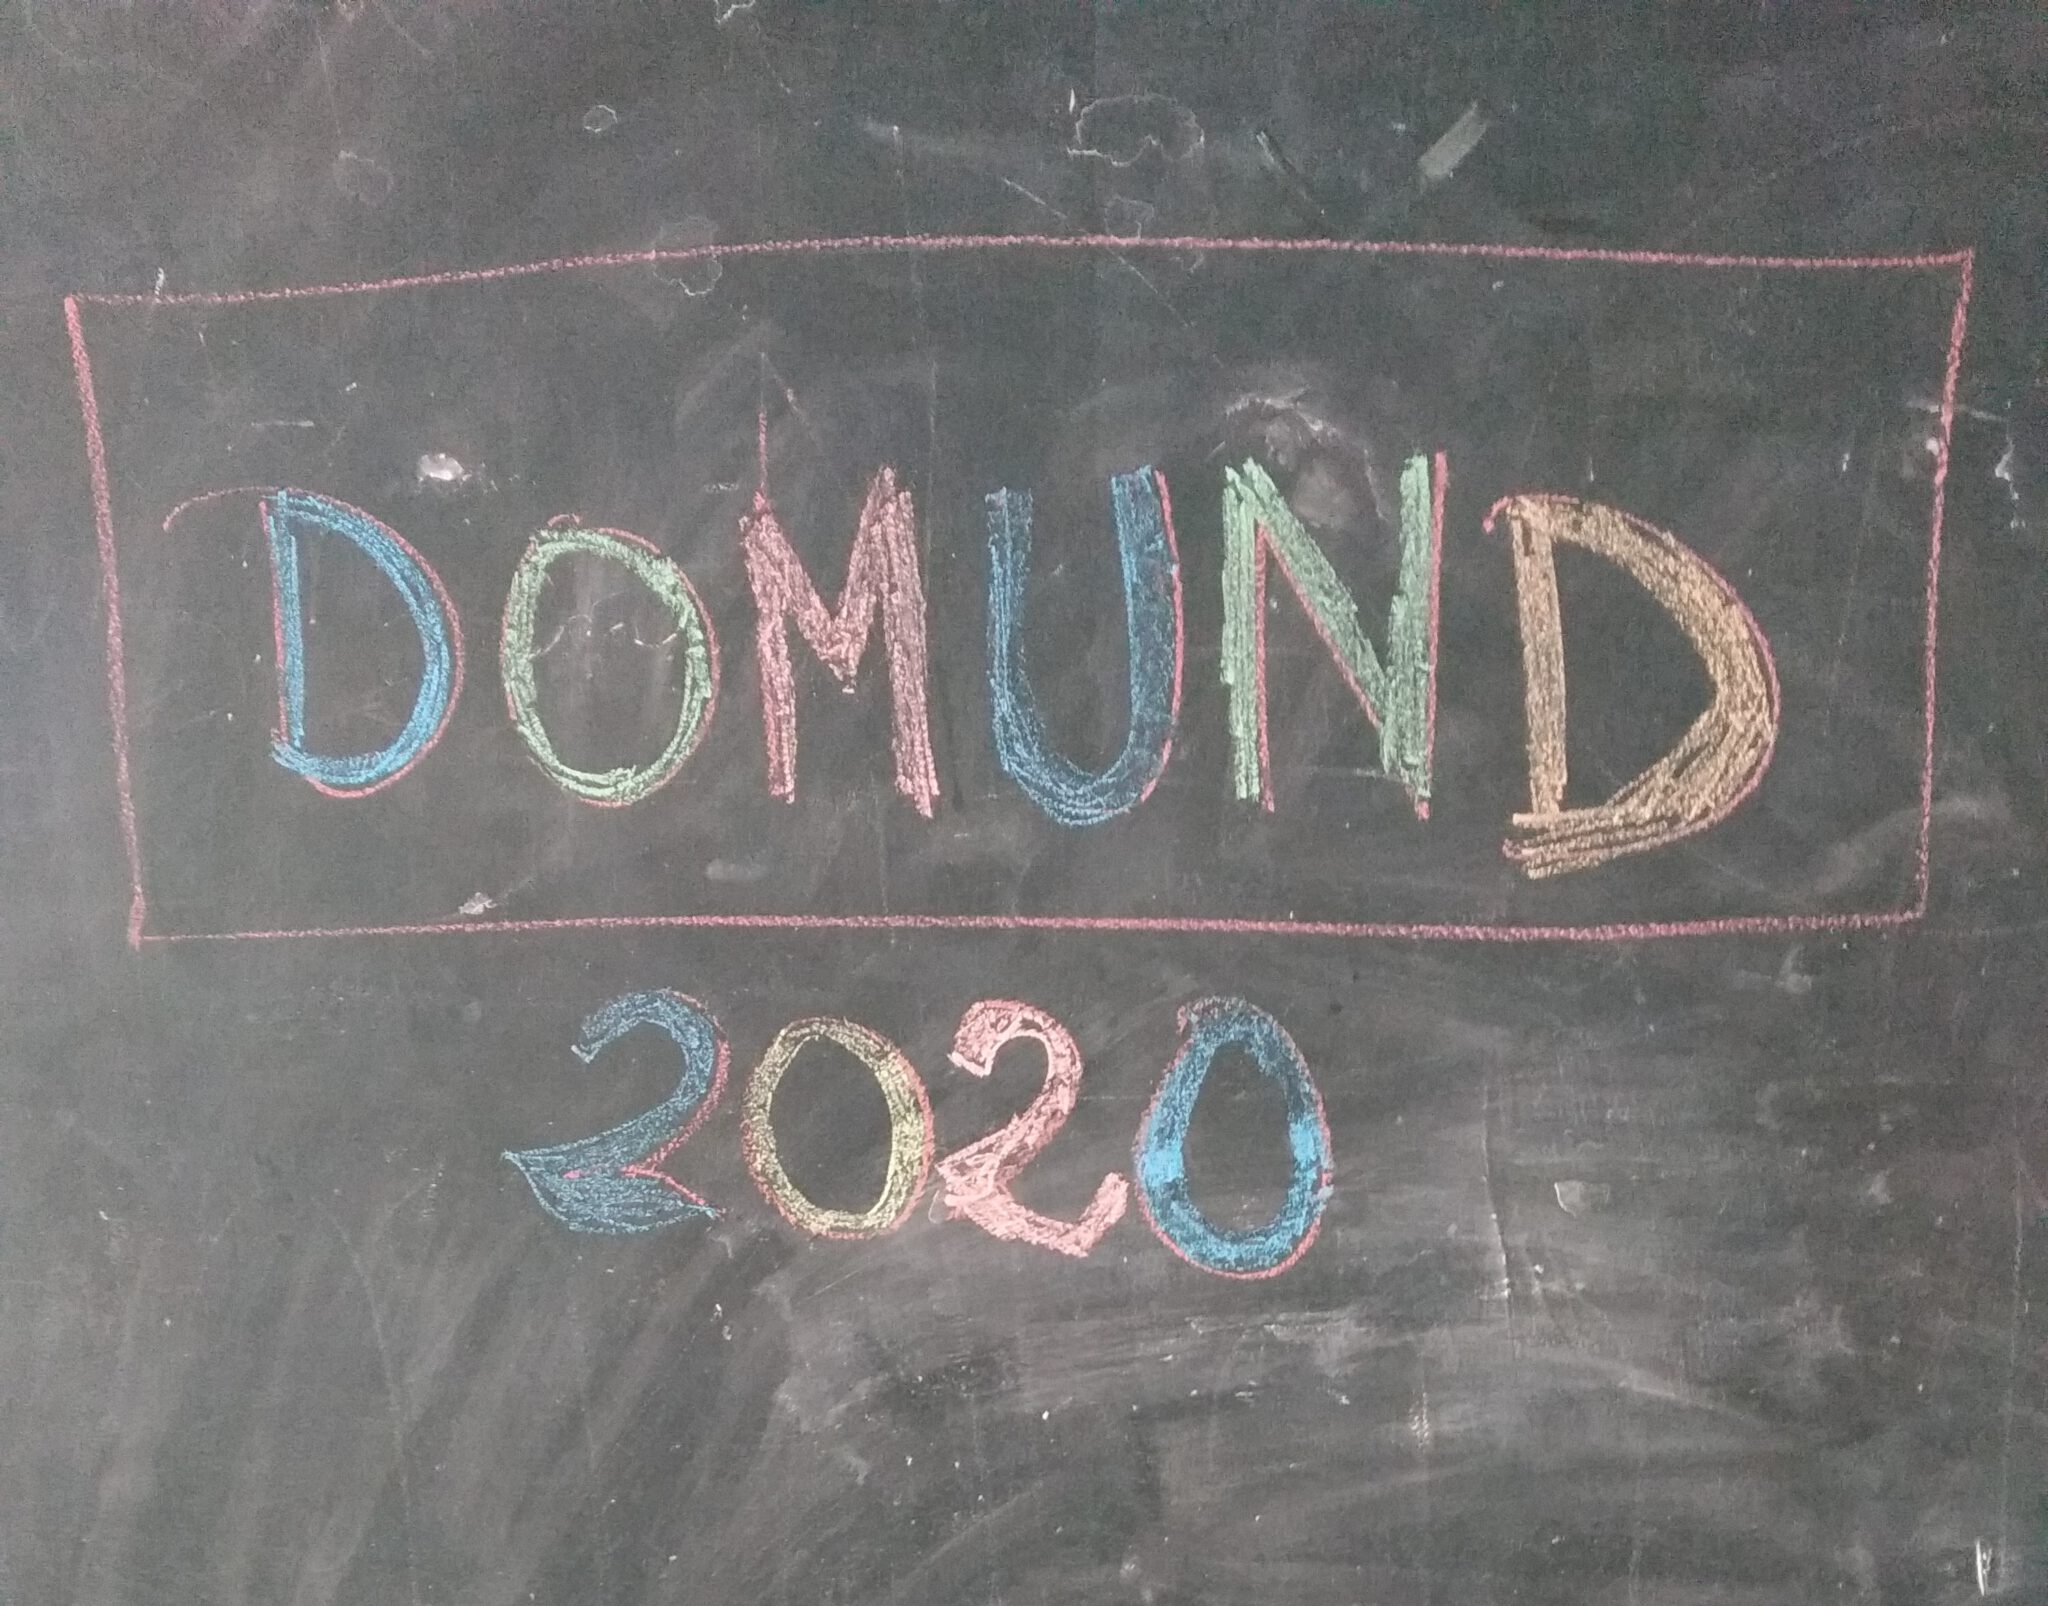 DOMUND
2020